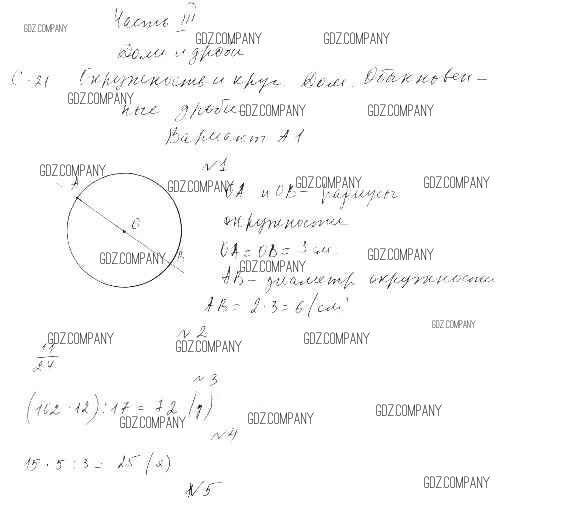 Часть III
GDZ.COMPANY
GDZ.COMPANY GDZ.COMPANY
Доли и дроби
С-21 Окружность и круг. Доли. Обыкновен-
GDZ.COMPANY
ные дроби
GDZ.COMPANY GDZ.COMPANY
Вариант А1
№1
GDZ.COMPANY
A
GDZ.COMPANY GDZ.COMPANY GDZ.COMPANY
OA и OB - радиусы
окружности
O
OA = OB = 3 см.
GDZ.COMPANY B GDZ.COMPANY GDZ.COMPANY
AB - диаметр окружности
AB = 2 · 3 = 6 (см)
GDZ.COMPANY
№2
GDZ.COMPANY GDZ.COMPANY GDZ.COMPANY
11
24
№3
(102 · 12) : 17 = 72 (g)
GDZ.COMPANY GDZ.COMPANY GDZ.COMPANY
№4
15 · 5 : 3 = 25 (г)
№5
GDZ.COMPANY